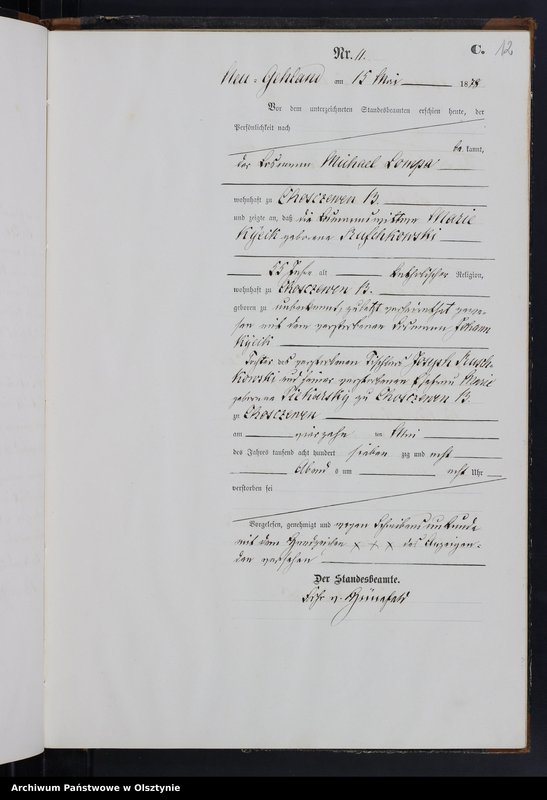 Nr. 11.
C.
12
Neu-Gehland am 15 Mai 1878
Vor dem unterzeichneten Standesbeamten erschien heute, der
Persönlichkeit nach
be kannt,
der Losmann Michael Lompa
wohnhaft zu Choszczewen B.
und zeigte an, daß die Losmannswittwe Marie
geborene Ruschkowski
55 Jahr alt katholischer Religion,
wohnhaft zu Choszczewen B.
geboren zu unbekannt, zuletzt verheirathet gewe-
sen mit dem verstorbenen Losmann Johann
Tochter des verstorbenen Tischlers Joseph Rusch-
kowski und seiner verstorbenen Ehefrau Marie
geborene Piekarsky zu Choszczewen B.
zu Choszczewen
am vierzehn ten Mai
des Jahres tausend acht hundert sieben zig und acht
Abend s um acht Uhr
verstorben sei
Vorgelesen, genehmigt und wegen Schreibensunkunde
mit dem Handzeichen x + x des Anzeigen-
den versehen
Der Standesbeamte.
Frhr v. Hünefeld
Archiwum Państwowe w Olsztynie